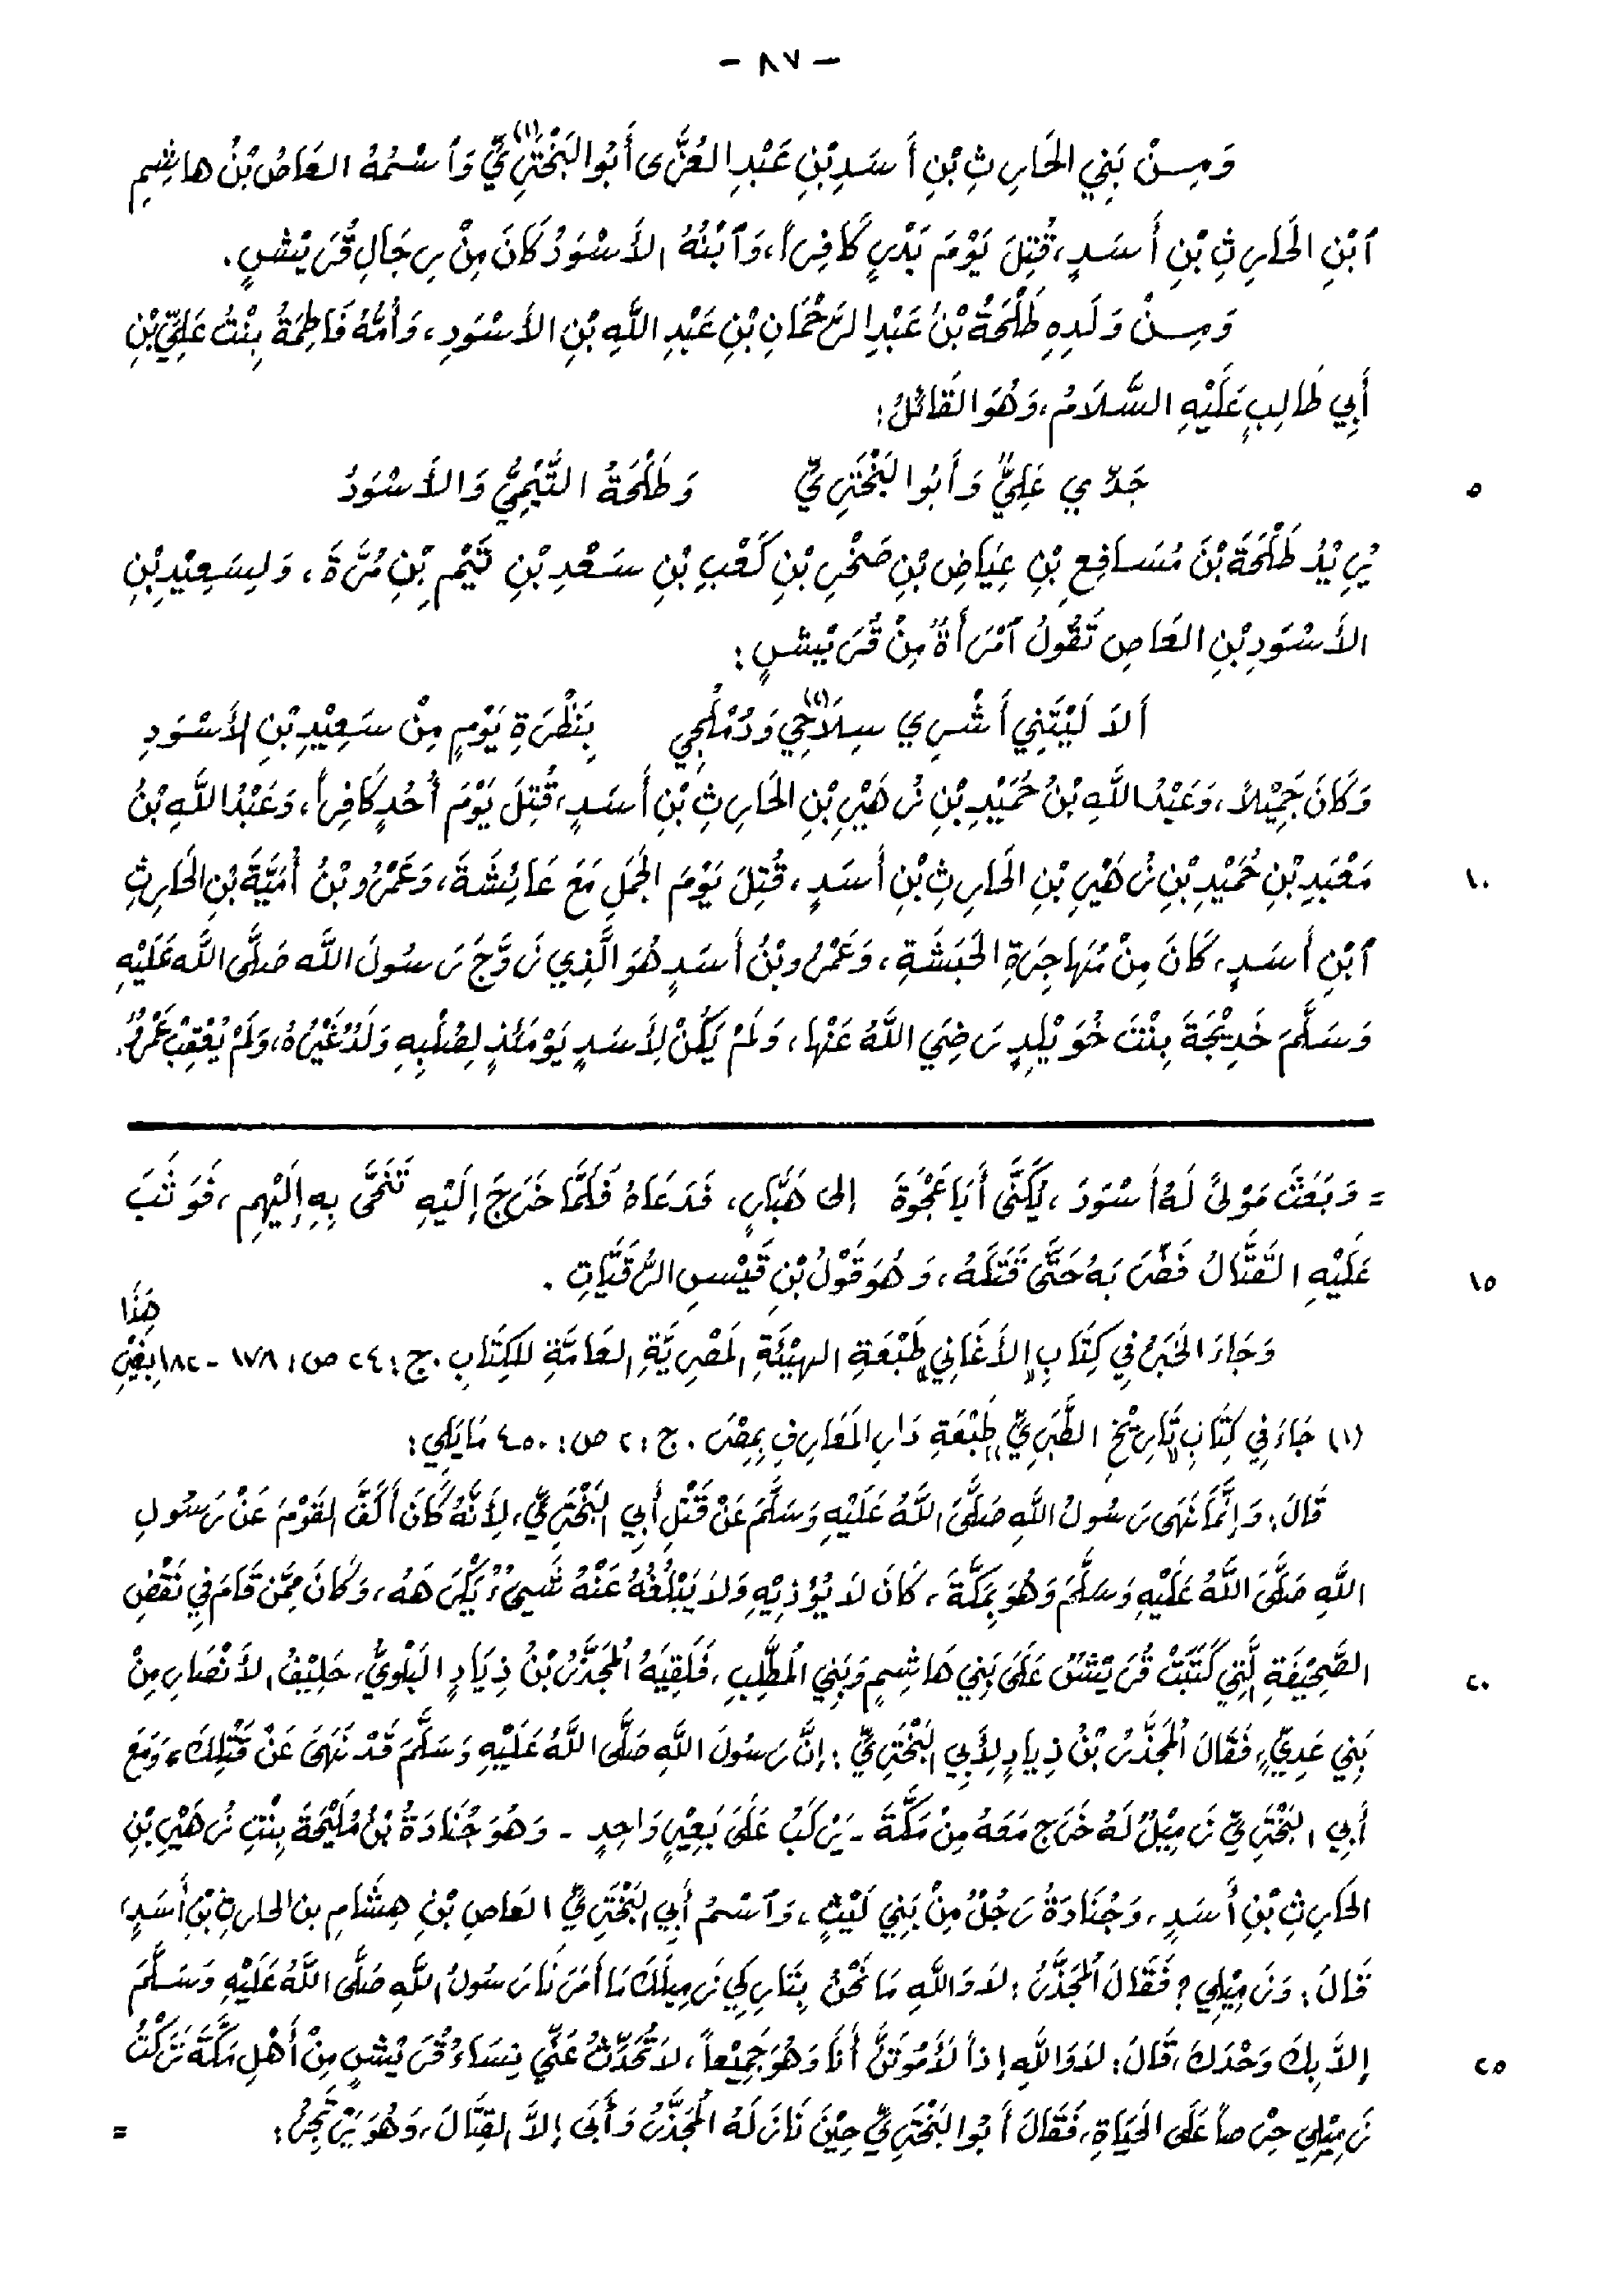 - ٨٧ -
وَمِـنْ بَنِي الحَارِثِ بْنِ أَسَدِ بْنِ عَبْدِ العُزَّى أَبُو البَخْتَرِيِّ(١) وَٱسْمُهُ العَاصُ بْنُ هاشِمِ
ٱبْنِ الحَارِثِ بْنِ أَسَدٍ، قُتِلَ يَوْمَ بَدْرٍ كَافِراً، وَٱبْنُهُ الأَسْوَدُ كَانَ مِنْ رِجَالِ قُرَيْشٍ.
وَمِـنْ وَلَدِهِ طَلْحَةُ بْنُ عَبْدِ الرَّحْمَانِ بْنِ عَبْدِ اللَّهِ بْنِ الأَسْوَدِ، وَأُمُّهُ فَاطِمَةُ بِنْتُ عَلِيِّ بْنِ
أَبِي طَالِبٍ عَلَيْهِ السَّلَامُ، وَهُوَ القَائِلُ:
جَدِّي عَلِيٌّ وَأَبُو البَخْتَرِيِّ وَطَلْحَةُ التَّيْمِيُّ وَالأَسْوَدُ ٥
يُرِيْدُ طَلْحَةَ بْنَ مُسَافِعِ بْنِ عِيَاضِ بْنِ صَخْرِ بْنِ كَعْبِ بْنِ سَعْدِ بْنِ تَيْمِ بْنِ مُرَّةَ، وَلِسَعِيْدِ بْنِ
الأَسْوَدِ بْنِ العَاصِ تَقُولُ ٱمْرَأَةٌ مِنْ قُرَيْشٍ:
أَلَا لَيْتَنِي أَشْرِي سِلَاحِي(٢) وَدُمْلُجِي بِنَظْرَةِ يَوْمٍ مِنْ سَعِيْدِ بْنِ الأَسْوَدِ
وَكَانَ جَمِيْلاً، وَعَبْدُ اللَّهِ بْنُ حُمَيْدِ بْنِ زُهَيْرِ بْنِ الحَارِثِ بْنِ أَسَدٍ، قُتِلَ يَوْمَ أُحُدٍ كَافِراً، وَعَبْدُ اللَّهِ بْنُ
مَعْبَدِ بْنِ حُمَيْدِ بْنِ زُهَيْرِ بْنِ الحَارِثِ بْنِ أَسَدٍ، قُتِلَ يَوْمَ الجَمَلِ مَعَ عَائِشَةَ، وَعَمْرُو بْنُ أُمَيَّةَ بْنِ الحَارِثِ ١٠
ٱبْنِ أَسَدٍ، كَانَ مِنْ مُهَاجِرَةِ الحَبَشَةِ، وَعَمْرُو بْنُ أَسَدٍ هُوَ الَّذِي زَوَّجَ رَسُولَ اللَّه صَلَّى اللَّه عَلَيْهِ
وَسَلَّمَ خَدِيْجَةَ بِنْتَ خُوَيْلِدٍ رَضِيَ اللَّهُ عَنْهَا، وَلَمْ يَكُنْ لِأَسَدٍ يَوْمَئِذٍ لِصُلْبِهِ وَلَدٌ غَيْرُهُ، وَلَمْ يُعْقِبْ عَمْرٌو.
= وَبَعَثَ مَوْلىً لَهُ أَسْوَدَ، يُكَنَّى أَبَا عَجْوَةَ إلى هَبَّارٍ، فَدَعَاهُ فَلَمَّا خَرَجَ إلَيْهِ تَنَحَّى بِهِ إلَيْهِمِ، فَوَثَبَ
عَلَيْهِ القَتَّالُ فَضَرَبَهُ حَتَّى قَتَلَهُ، وَهُوَ قَوْلُ بْنِ قَيْسِ الرُّقَيَّاتِ. ١٥
وَجَاءَ الخَبَرُ فِي كِتَابِ "الأَغَانِي" طَبْعَةِ الهيْئَةِ المَصْرِيَّةِ العَامَّةِ للكِتَابِ. ج: ٢٤ ص: ١٧٨ - ١٨٢ بِغَيْرِ هَذَا
(١) جَاءَ فِي كِتَابِ "تَارِيْخِ الطَّبَرِيِّ" طَبْعَةِ دَارِ المَعَارِفِ بِمِصْرَ. ج: ٢ ص: ٤٥٠ مَا يَلِي:
قَالَ: وَإنَّمَا نَهَى رَسُولُ اللَّهِ صَلَّىَ اللَّهُ عَلَيْهِ وَسَلَّمَ عَنْ قَتْلِ أَبِي البَخْتَرِيِّ، لِأَنَّهُ كَانَ أَكَفَّ القَوْمِ عَنْ رَسُولِ
اللَّهِ صَلَّىَ اللَّهُ عَلَيْهِ وَسَلَّمَ وَهُوَ بِمَكَّةَ، كَانَ لَا يُؤْذِيْهِ وَلَا يَبْلُغُهُ عَنْهُ شَيءٌ يَكْرَهَهُ، وَكَانَ مِمَّن قَامَ فِي نَقْضِ
الصَّحِيْفَةِ الَّتِي كَتَبَتْ قُرَيْشٌ عَلَى بَنِي هَاشِمٍ وَبَنِي المُطَّلِبِ، فَلَقِيَهُ المُجَذَّرُ بْنُ ذِيَادٍ البَلَوِيُّ، حَلِيْفُ الأَنْصَارِ مِنْ ٢٠
بَنِي عَدِيٍّ، فَقَالَ المُجَذَّرُ بْنُ ذِيَادٍ لِأَبِي البَخْتَرِيِّ: إنَّ رَسُولَ اللَّهِ صَلَّى اللَّهُ عَلَيْهِ وَسَلَّمَ قَدْ نَهَى عَنْ قَتْلِكَ، وَمَعَ
أَبِي البَخْتَرِيِّ زَمِيْلٌ لَهُ خَرَج مَعَهُ مِنْ مَكَّةَ - يَرْكَبُ عَلَى بَعِيْرٍ وَاحِدٍ - وَهُوَ جُنَادَةُ بْنُ مُلَيْحَةَ بِنْتِ زُهَيْرِ بْنِ
الحَارِثِ بْنِ أَسَدٍ، وَجُنَادَةُ رَجُلٌ مِنْ بَنِي لَيْثٍ، وَٱسْمُ أَبِي البَخْتَرِيِّ العَاصِ بْنِ هِشَامِ بن الحارثِ بْنِ أَسَدٍ،
قَالَ: وَزَمِيْلِي؟ فَقَالَ المُجَذَّرُ: لَا وَاللَّهِ مَا نَحْنُ بِتَارِكِي زَمِيلِكَ مَا أَمَرَنَا رَسُولُ اللَّهِ صَلَّى اللَّهُ عَلَيْهِ وَسَلَّمَ
إلاَّ بِكَ وَحْدَكَ، قَالَ: لَا وَاللَّهِ إذاً لَأَمُوتَنَّ أَنَا وَهُوَ جَمِيْعاً، لَا تُحَدِّثُ عَنِّي نِسَاءُ قُرَيْشٍ مِنْ أَهْلِ مَكَّةَ تَرَكْتُ ٢٥
زَمِيْلِي حِرْصاً عَلَى الحَيَاةِ، فَقَالَ أَبُو البَخْتَرِيِّ حِيْنَ نَازَلَهُ المُجَذَّرُ وَأَبَى إلاَّ القِتَالَ، وَهُوَ يَرْتَجِزُ: =